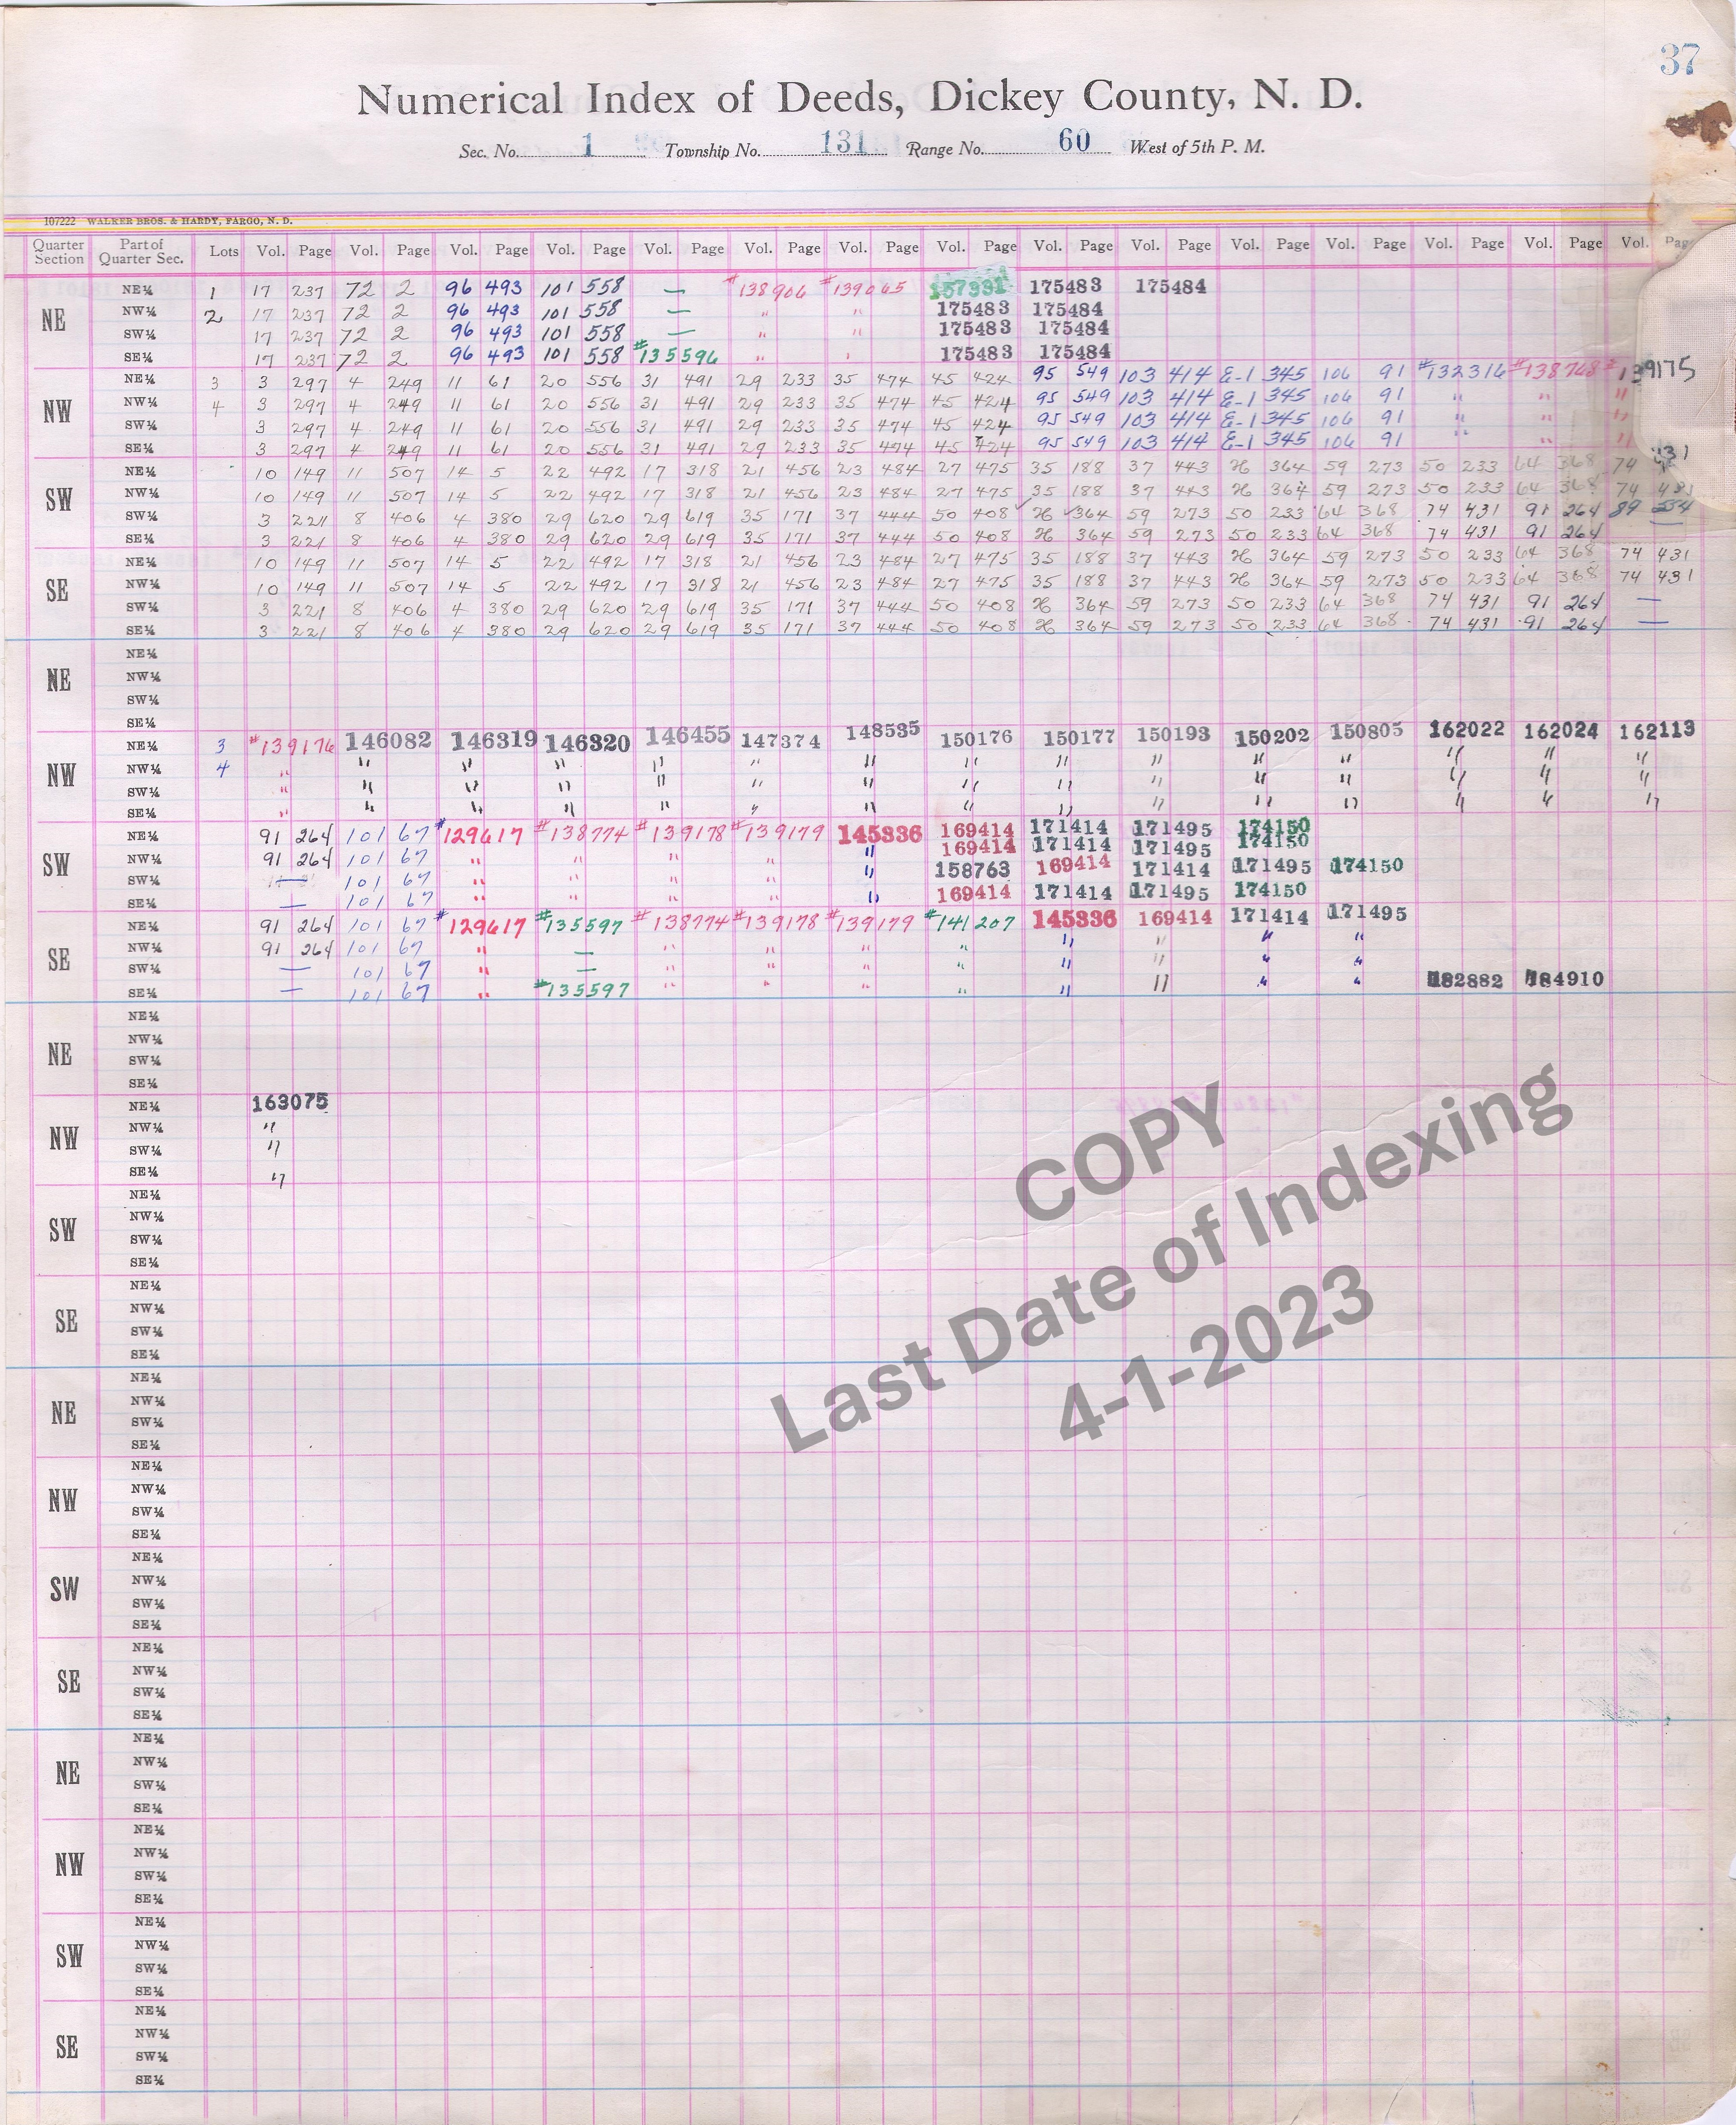 37
Numerical Index of Deeds, Dickey County, N. D.
Sec. No. 1 Township No. 131 Range No. 60 West of 5th P. M.
107222 WALKER BROS. & HARDY, FARGO, N. D.
Quarter Section Part of Quarter Sec. Lots Vol. Page Vol. Page Vol. Page Vol. Page Vol. Page Vol. Page Vol. Page Vol. Page Vol. Page Vol. Page Vol. Page Vol. Page Vol. Page Vol. Page Vol. Page
NE NE¼ 1 17 237 72 2 96 493 101 558 — #138906 #139065 157391 175483 175484
NW¼ 2 17 237 72 2 96 493 101 558 — " " 175483 175484
SW¼ 17 237 72 2 96 493 101 558 — " " 175483 175484
SE¼ 17 237 72 2 96 493 101 558 #135596 " " 175483 175484
NW NE¼ 3 3 297 4 249 11 61 20 556 31 491 29 233 35 474 45 424 95 549 103 414 E-1 345 106 91 #132316 #138768 #139175
NW¼ 4 3 297 4 249 11 61 20 556 31 491 29 233 35 474 45 424 95 549 103 414 E-1 345 106 91 " " "
SW¼ 3 297 4 249 11 61 20 556 31 491 29 233 35 474 45 424 95 549 103 414 E-1 345 106 91 " " "
SE¼ 3 297 4 249 11 61 20 556 31 491 29 233 35 474 45 424 95 549 103 414 E-1 345 106 91 " " "
SW NE¼ 10 149 11 507 14 5 22 492 17 318 21 456 23 484 27 475 35 188 37 443 H 364 59 273 50 233 64 368 74 431
NW¼ 10 149 11 507 14 5 22 492 17 318 21 456 23 484 27 475 35 188 37 443 H 364 59 273 50 233 64 368 74 431
SW¼ 3 221 8 406 4 380 29 620 29 619 35 171 37 444 50 408 H 364 59 273 50 233 64 368 74 431 91 264 89
SE¼ 3 221 8 406 4 380 29 620 29 619 35 171 37 444 50 408 H 364 59 273 50 233 64 368 74 431 91 264 —
SE NE¼ 10 149 11 507 14 5 22 492 17 318 21 456 23 484 27 475 35 188 37 443 H 364 59 273 50 233 64 368 74 431
NW¼ 10 149 11 507 14 5 22 492 17 318 21 456 23 484 27 475 35 188 37 443 H 364 59 273 50 233 64 368 74 431
SW¼ 3 221 8 406 4 380 29 620 29 619 35 171 37 444 50 408 H 364 59 273 50 233 64 368 74 431 91 264 —
SE¼ 3 221 8 406 4 380 29 620 29 619 35 171 37 444 50 408 H 364 59 273 50 233 64 368 74 431 91 264 —
NE NE¼
NW¼
SW¼
SE¼
NW NE¼ 3 #139176 146082 146319 146320 146455 147374 148535 150176 150177 150193 150202 150805 162022 162024 162113
NW¼ 4 " " " " " " " " " " " " " " "
SW¼ " " " " " " " " " " " " " " "
SE¼ " " " " " " " " " " " " " " "
SW NE¼ 91 264 101 67 #129617 #138774 #139178 #139179 145336 169414 171414 171495 174150
NW¼ 91 264 101 67 " " " " " 169414 171414 171495 174150
SW¼ — 101 67 " " " " " 158763 169414 171414 171495 174150
SE¼ — 101 67 " " " " " 169414 171414 171495 174150
SE NE¼ 91 264 101 67 #129617 #135597 #138774 #139178 #139179 #141207 145336 169414 171414 171495
NW¼ 91 264 101 67 " — " " " " " " " "
SW¼ — 101 67 " — " " " " " " " "
SE¼ — 101 67 " #135597 " " " " " " " " 182882 184910
NE NE¼
NW¼
SW¼
SE¼
NW NE¼ 163075
NW¼ "
SW¼ "
SE¼ "
SW NE¼
NW¼
SW¼
SE¼
SE NE¼
NW¼
SW¼
SE¼
NE NE¼
NW¼
SW¼
SE¼
NW NE¼
NW¼
SW¼
SE¼
SW NE¼
NW¼
SW¼
SE¼
SE NE¼
NW¼
SW¼
SE¼
NE NE¼
NW¼
SW¼
SE¼
NW NE¼
NW¼
SW¼
SE¼
SW NE¼
NW¼
SW¼
SE¼
SE NE¼
NW¼
SW¼
SE¼
COPY
Last Date of Indexing
4-1-2023